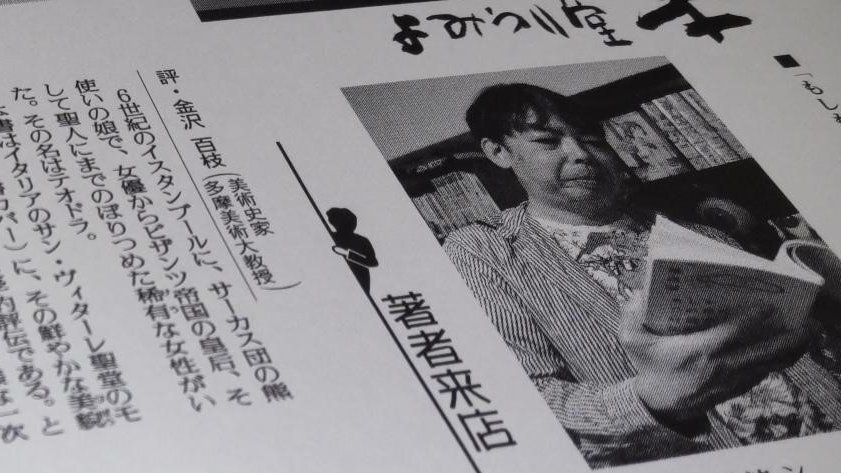 よみうり堂
■「もし
著者来店
評・金沢 百枝(美術史家 多摩美術大教授)
6世紀のイスタンブールに、サーカス団の熊
使いの娘で、女優からビザンツ帝国の皇后、そ
して聖人にまでのぼりつめた稀有な女性がい
た。その名はテオドラ。
本書はイタリアのサン・ヴィターレ聖堂のモ
カバー)に、その鮮やかな美貌
的評伝である。と
は一次